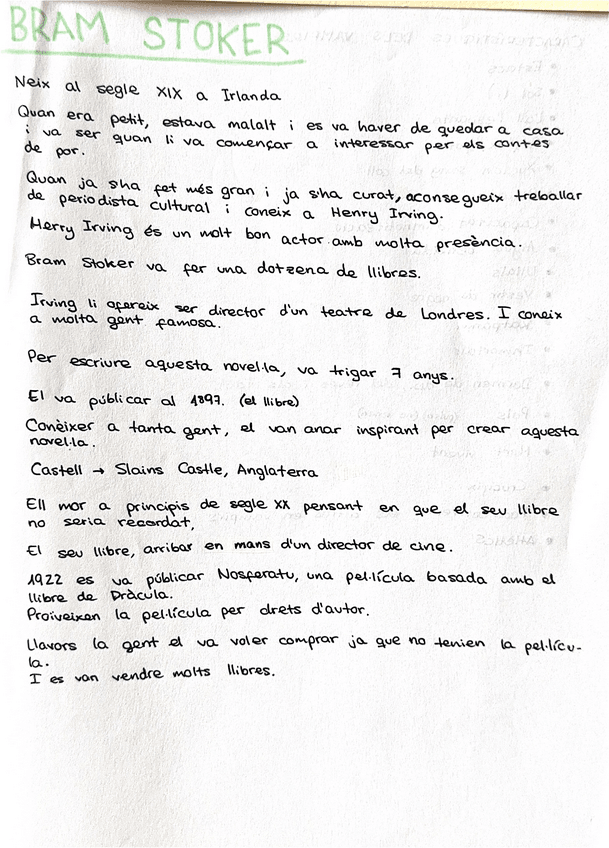 BRAM STOKER
Neix al segle XIX a Irlanda
Quan era petit, estava malalt i es va haver de quedar a casa
i va ser quan li va començar a interessar per els contes
de por.
Quan ja s'ha fet més gran i ja s'ha curat, aconsegueix treballar
de periodista cultural i coneix a Henry Irving.
Herry Irving és un molt bon actor amb molta presència.
Bram Stoker va fer una dotzena de llibres.
Irving li ofereix ser director d'un teatre de Londres. I coneix
a molta gent famosa.
Per escriure aquesta novel·la, va trigar 7 anys.
El va públicar al 1897. (el llibre)
Conèixer a tanta gent, el van anar inspirant per crear aquesta
novel·la.
Castell → Slains Castle, Anglaterra
Ell mor a principis de segle XX pensant en que el seu llibre
no seria recordat,
El seu llibre, arribar en mans d'un director de cine.
1922 es va públicar Nosferatu, una pel·lícula basada amb el
llibre de Dràcula.
Proïveixen la pel·lícula per drets d'autor.
Llavors la gent el va voler comprar ja que no tenien la pel·lícu-
la.
I es van vendre molts llibres.